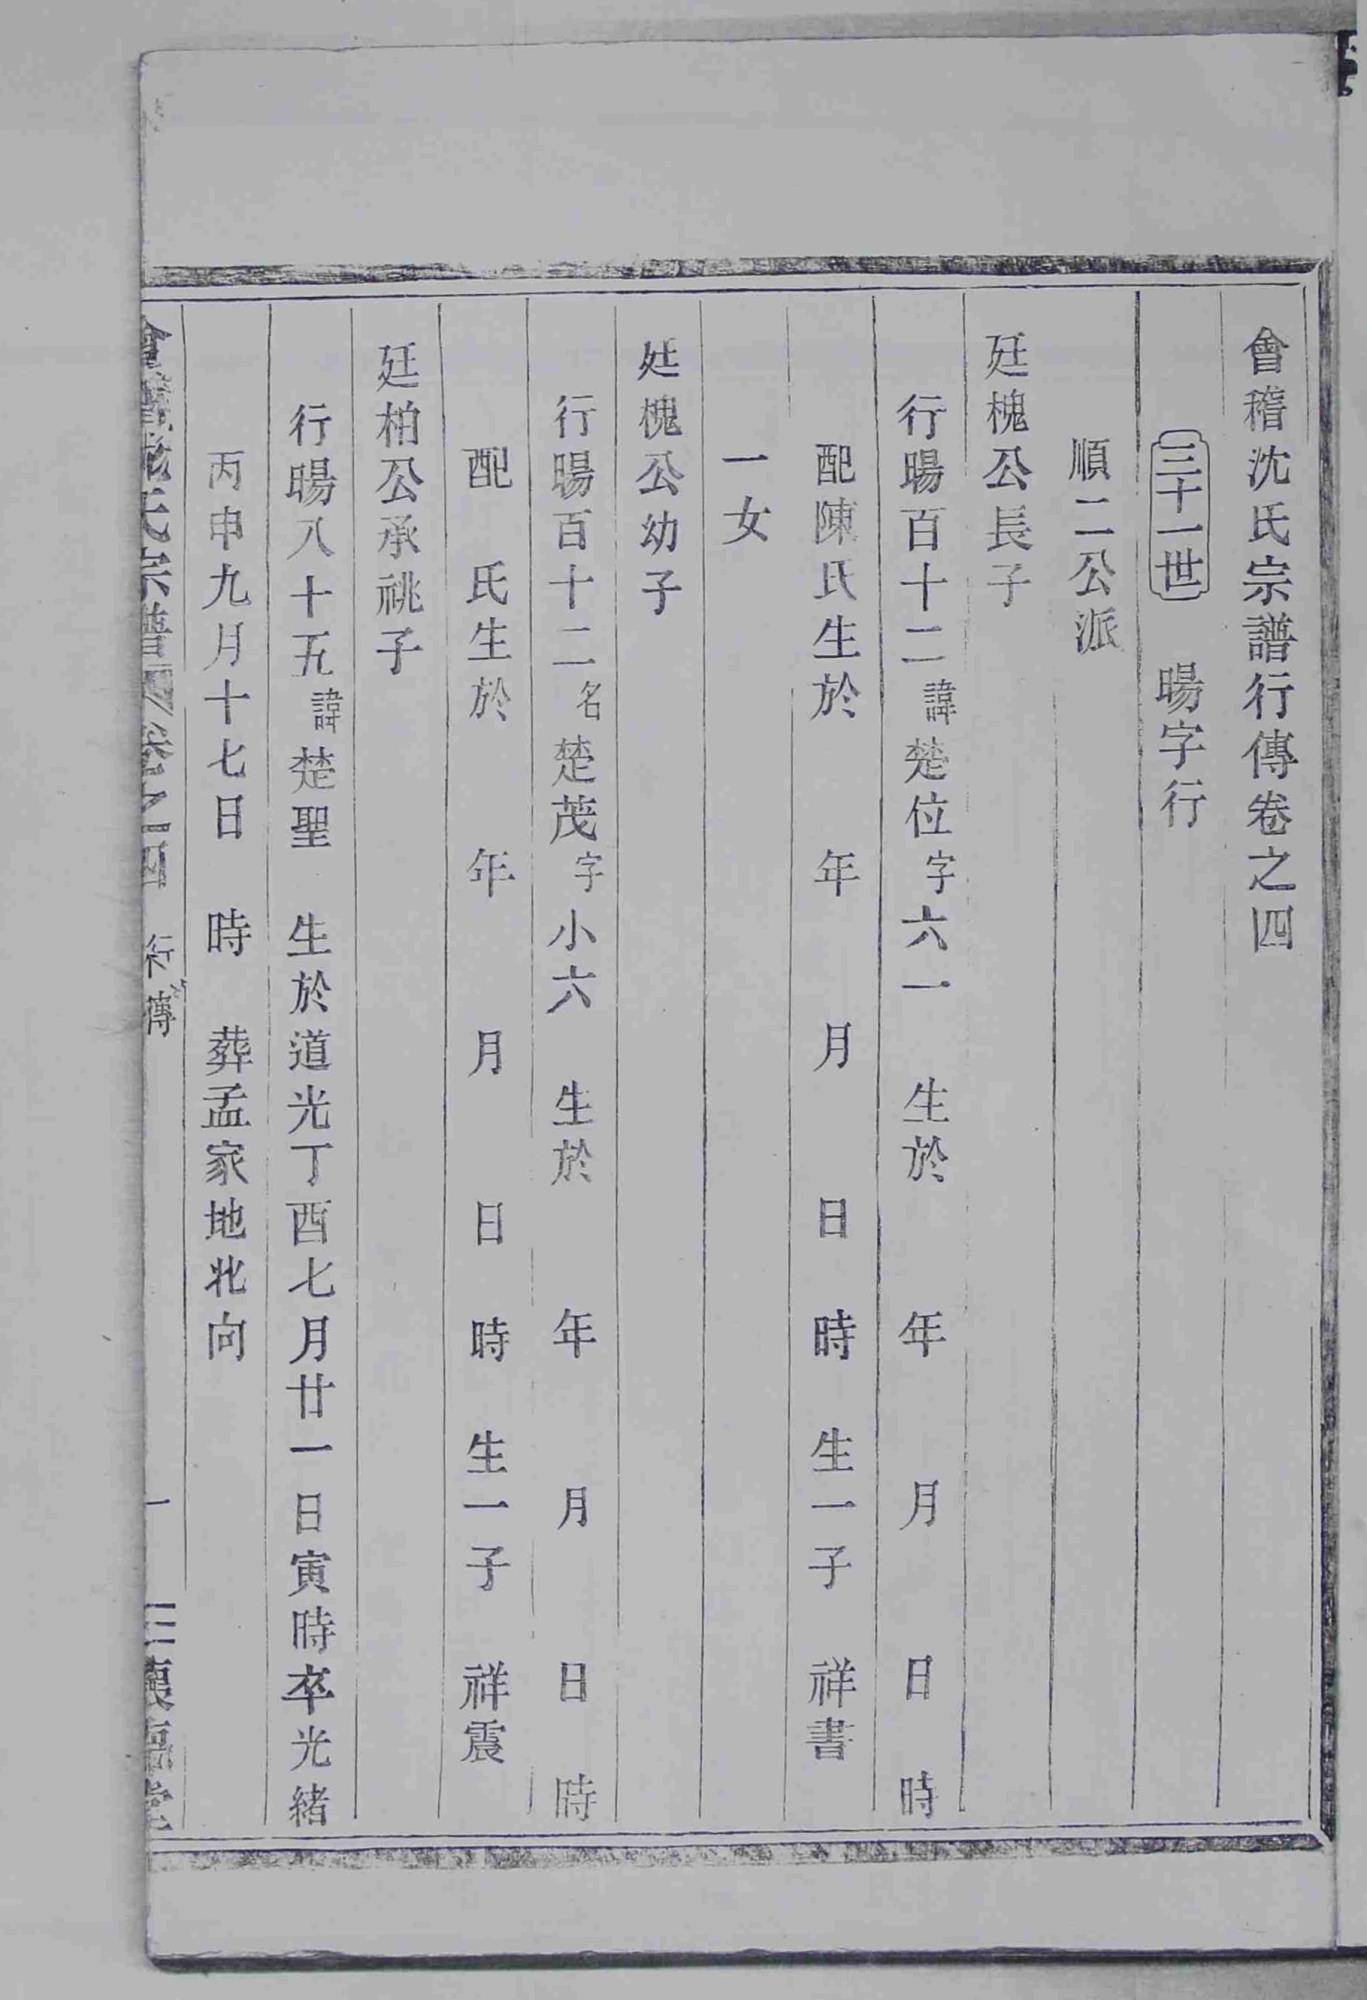 會稽沈氏宗譜行傳卷之四
三十一世 暘字行
順二公派
廷槐公長子
行暘百十二諱楚位字六一 生於 年 月 日 時
配陳氏生於 年 月 日 時 生一子 祥書
一女
廷槐公幼子
行暘百十二名楚茂字小六 生於 年 月 日 時
配 氏生於 年 月 日 時 生一子 祥震
廷柏公承祧子
行暘八十五諱楚聖 生於道光丁酉七月廿一日寅時卒光緒
丙申九月十七日 時 葬孟家地北向
會稽沈氏宗譜 卷之四 行傳 一 三善堂